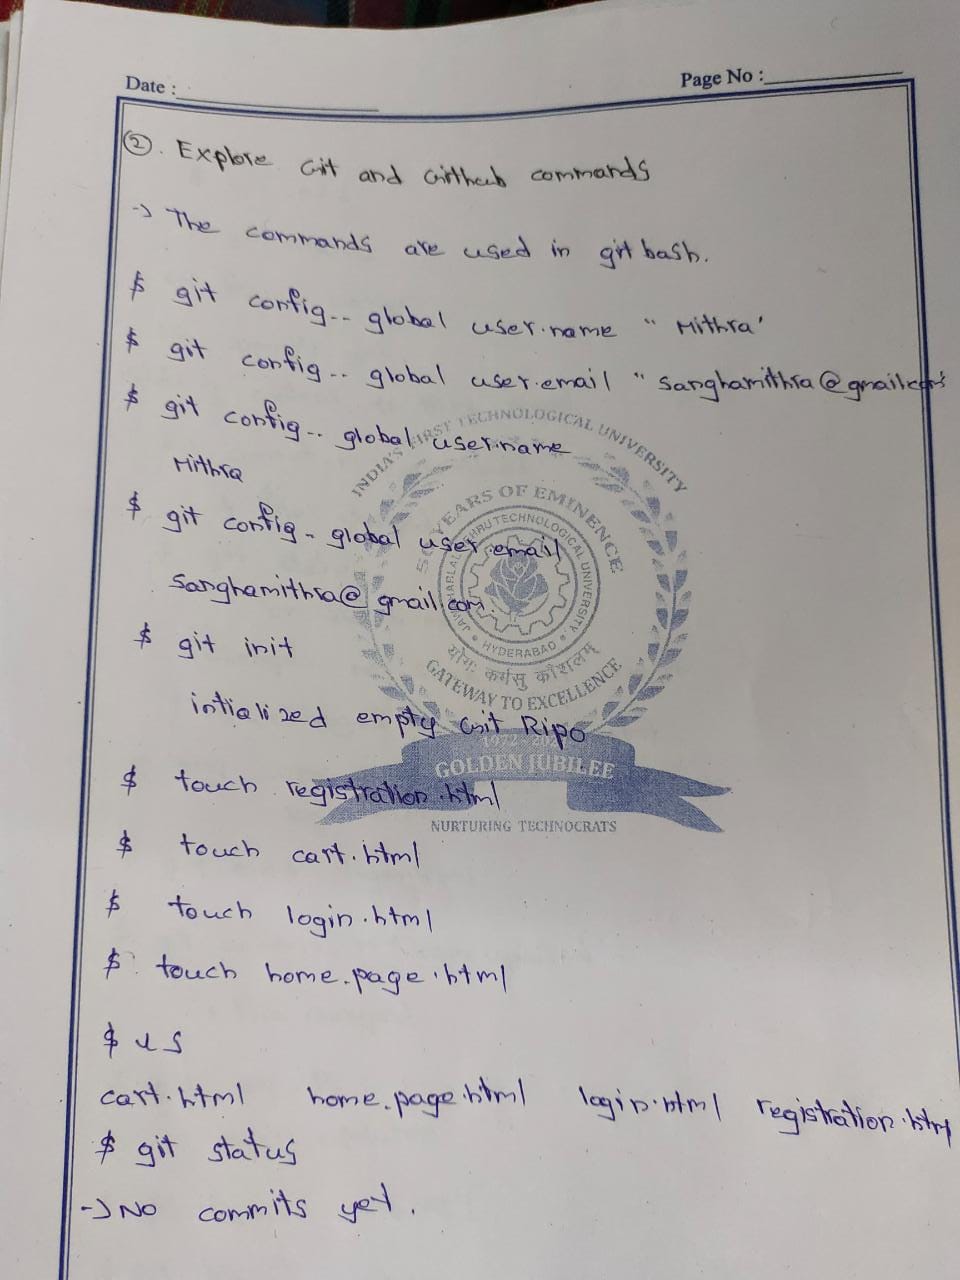 Date :
Page No :
②. Explore Git and Github commands
-> The commands are used in git bash.
$ git config -- global user.name " Mithra'
$ git config -- global user.email " sanghamithra@gmail.com"
$ git config -- global user.name
Mithra
$ git config - global user.email
sanghamithra@gmail.com
$ git init
intialized empty Git Ripo
$ touch registration.html
$ touch cart.html
$ touch login.html
$ touch home.page.html
$ ls
cart.html home.page.html login.html registration.html
$ git status
-> No commits yet.
INDIA'S FIRST TECHNOLOGICAL UNIVERSITY
50 YEARS OF EMINENCE
JAWAHARLAL NEHRU TECHNOLOGICAL UNIVERSITY
HYDERABAD
योगः कर्मसु कौशलम्
GATEWAY TO EXCELLENCE
GOLDEN JUBILEE
NURTURING TECHNOCRATS